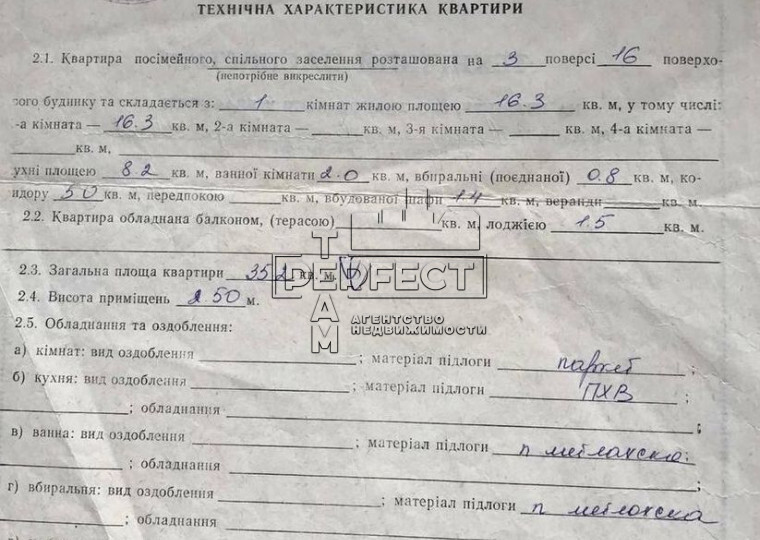 ТЕХНІЧНА ХАРАКТЕРИСТИКА КВАРТИРИ
2.1. Квартира посімейного, спільного заселення розташована на 3 поверсі 16 поверхо-
(непотрібне викреслити)
вого будинку та складається з: 1 кімнат жилою площею 16.3 кв. м, у тому числі:
-а кімната — 16.3 кв. м, 2-а кімната — кв. м, 3-я кімната — кв. м, 4-а кімната —
кв. м,
ухні площею 8.2 кв. м, ванної кімнати 2.0 кв. м, вбиральні (поєднаної) 0.8 кв. м, ко-
идору 5.0 кв. м, передпокою кв. м, вбудованої шафи 1.4 кв. м, веранди кв. м.
2.2. Квартира обладнана балконом, (терасою) кв. м, лоджією 1.5 кв. м.
2.3. Загальна площа квартири 35.2 кв. м.
2.4. Висота приміщень 2.50 м.
PERFECT
TEAM
АГЕНТСТВО
НЕДВИЖИМОСТИ
2.5. Обладнання та оздоблення:
а) кімнат: вид оздоблення ; матеріал підлоги паркет ;
б) кухня: вид оздоблення ; матеріал підлоги ПХВ ;
; обладнання ;
в) ванна: вид оздоблення ; матеріал підлоги п метлахска;
; обладнання ;
г) вбиральня: вид оздоблення ; матеріал підлоги п метлахска
; обладнання